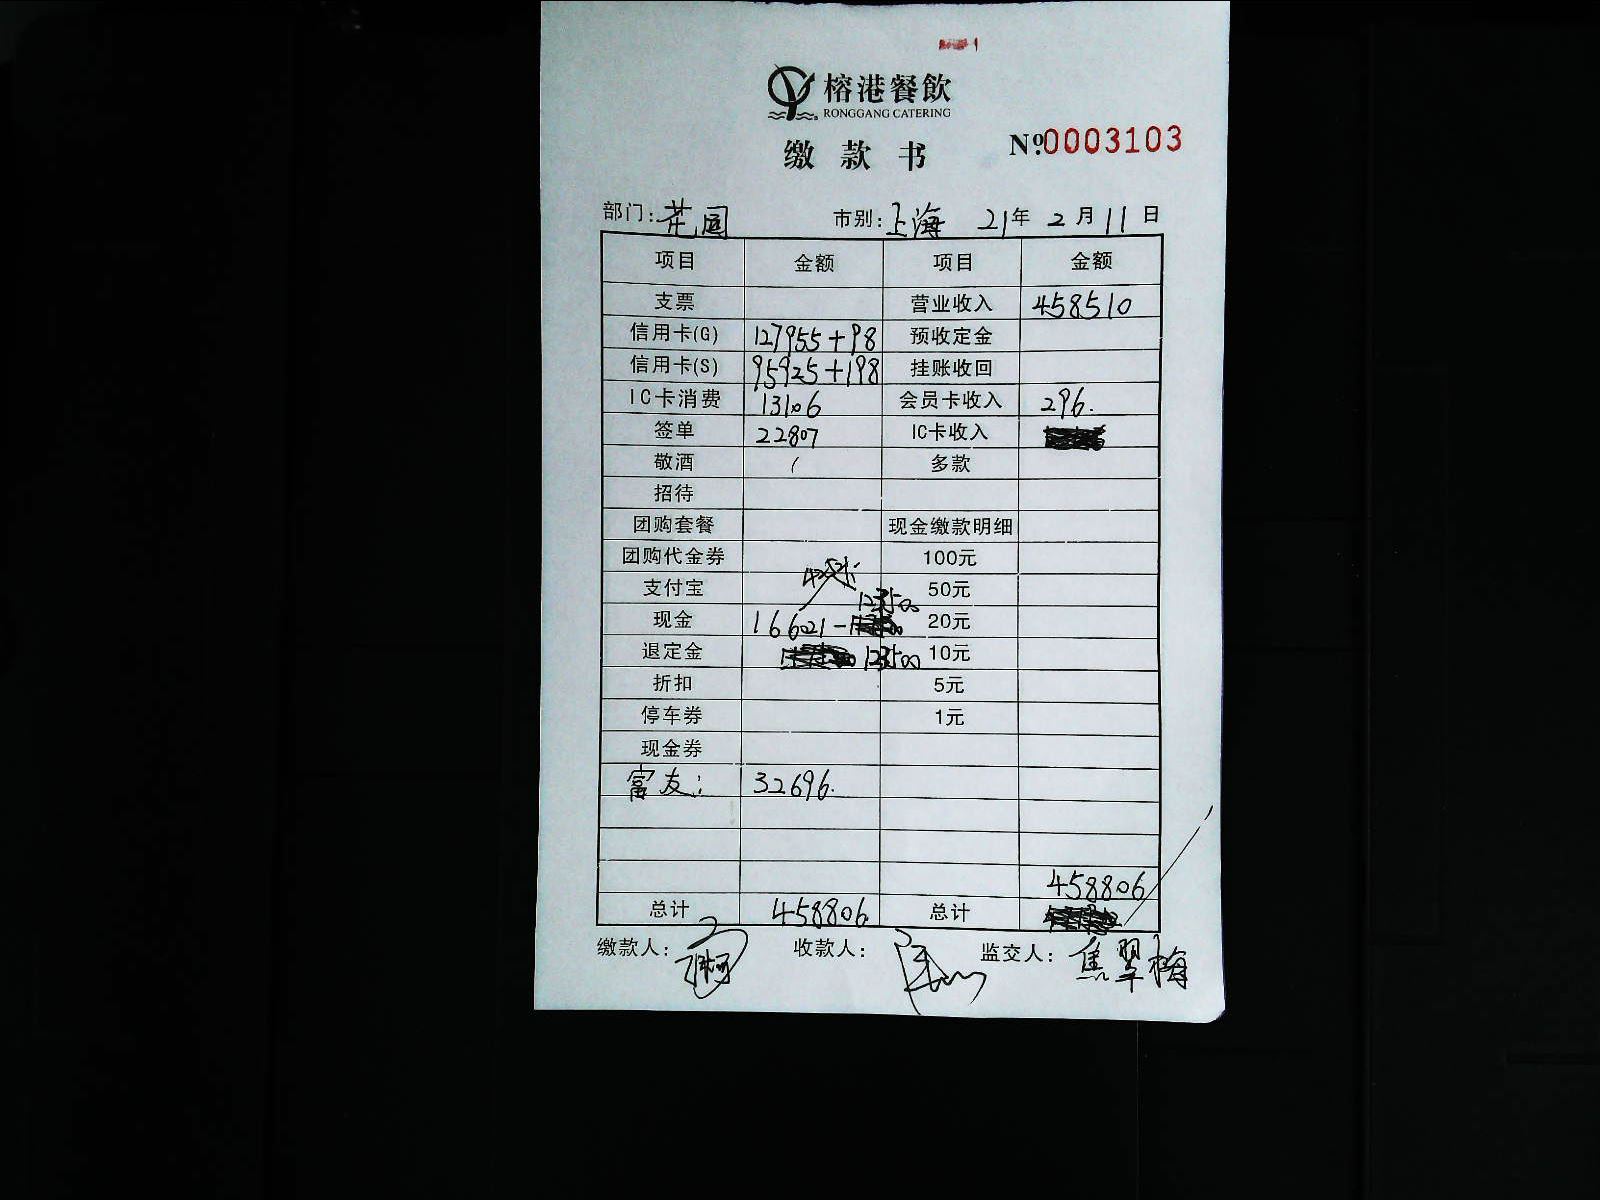 榕港餐飲
RONGGANG CATERING
缴款书
№0003103
部门：花园 市别：上海 21年 2月 11日
项目 金额 项目 金额
支票 营业收入 458510
信用卡(G) 127955+98 预收定金
信用卡(S) 95925+198 挂账收回
IC卡消费 13106 会员卡收入 296.
签单 22807 IC卡收入
敬酒 / 多款
招待
团购套餐 现金缴款明细
团购代金券 100元
支付宝 50元
123500
现金 166021- 20元
退定金 123500 10元
折扣 5元
停车券 1元
现金券
富友： 32696.
458806
总计 458806 总计
缴款人： 收款人： 监交人：焦翠梅